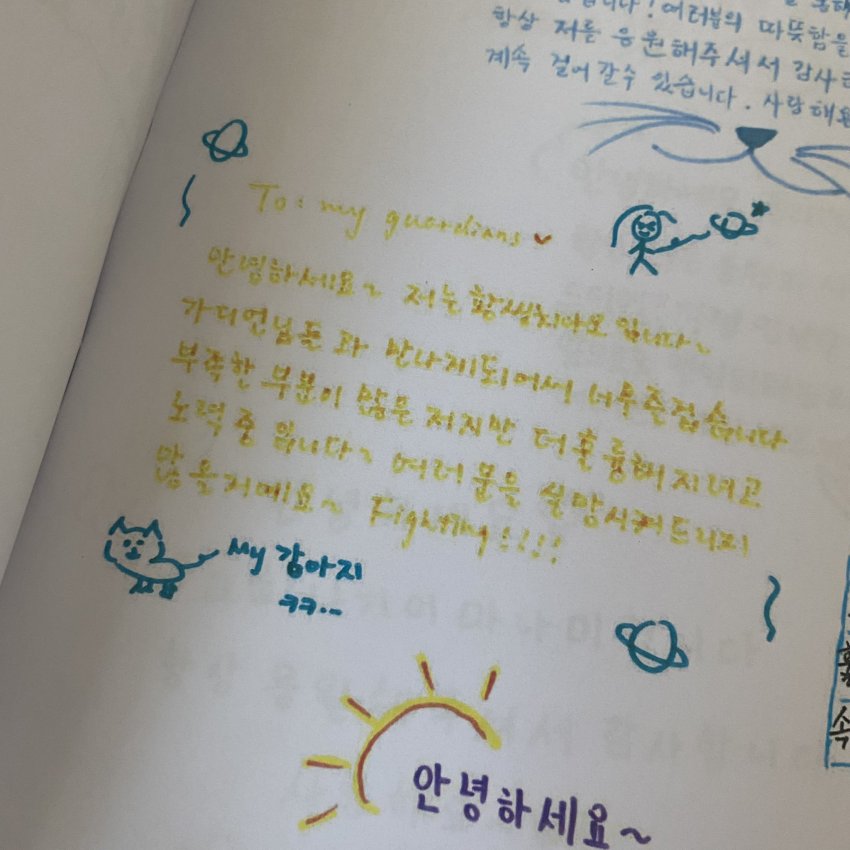 여러분의 따뜻함을
항상 저를 응원해주셔서 감사
계속 걸어갈수 있습니다. 사랑해요
To: my guardians
안녕하세요~ 저는 황씽치아오 입니다~
가디언님들 과 만나게되어서 너무존겁습니다
부족한 부분이 많은 저지만 더훌륭해지려고
노력 중 입니다~ 여러분을 실망시켜드리지
않을거예요~ Fighting!!!!
My 강아지
ㅋㅋ..
안녕하세요~
속